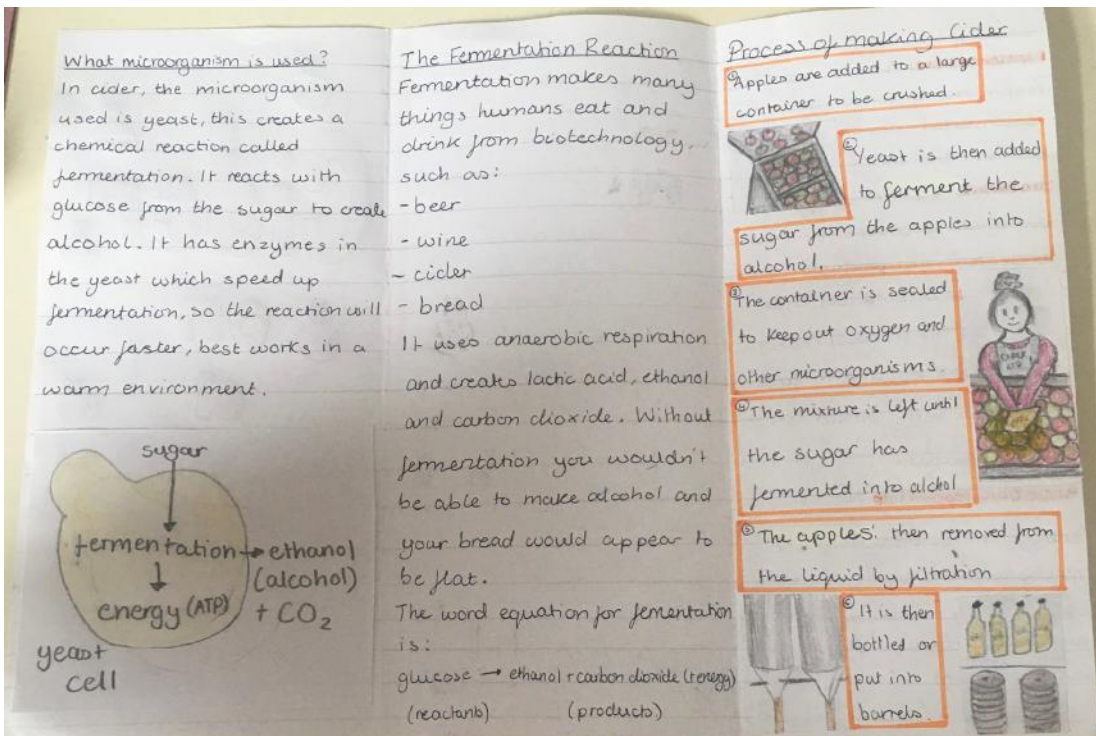 What microorganism is used?
In cider, the microorganism
used is yeast, this creates a
chemical reaction called
fermentation. It reacts with
glucose from the sugar to create
alcohol. It has enzymes in
the yeast which speed up
fermentation, so the reaction will
occur faster, best works in a
warm environment.
sugar
fermentation → ethanol
(alcohol)
energy (ATP) + CO₂
yeast
cell
The Fermentation Reaction
Fermentation makes many
things humans eat and
drink from biotechnology,
such as:
- beer
- wine
- cider
- bread
It uses anaerobic respiration
and creates lactic acid, ethanol
and carbon dioxide. Without
fermentation you wouldn't
be able to make alcohol and
your bread would appear to
be flat.
The word equation for fementation
is:
glucose → ethanol + carbon dioxide (+energy)
(reactants) (products)
Process of making Cider
① Apples are added to a large
container to be crushed.
② Yeast is then added
to ferment the
sugar from the apples into
alcohol.
③ The container is sealed
to keep out oxygen and
other microorganisms.
④ The mixture is left until
the sugar has
fermented into alchol
⑤ The apples then removed from
the liquid by filtration
⑥ It is then
bottled or
put into
barrels.